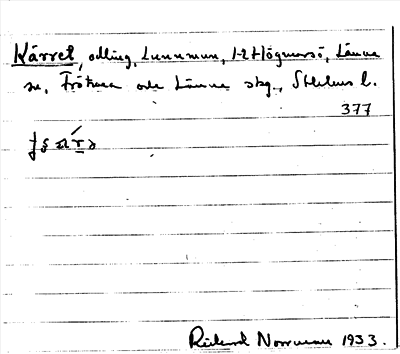 Kärret, odling, Lunnmun, 1-2 Högmarsö, Länna
sn, Frötuna och Länna skg., Sthlms l.
377
Rickard Norrman 1933.